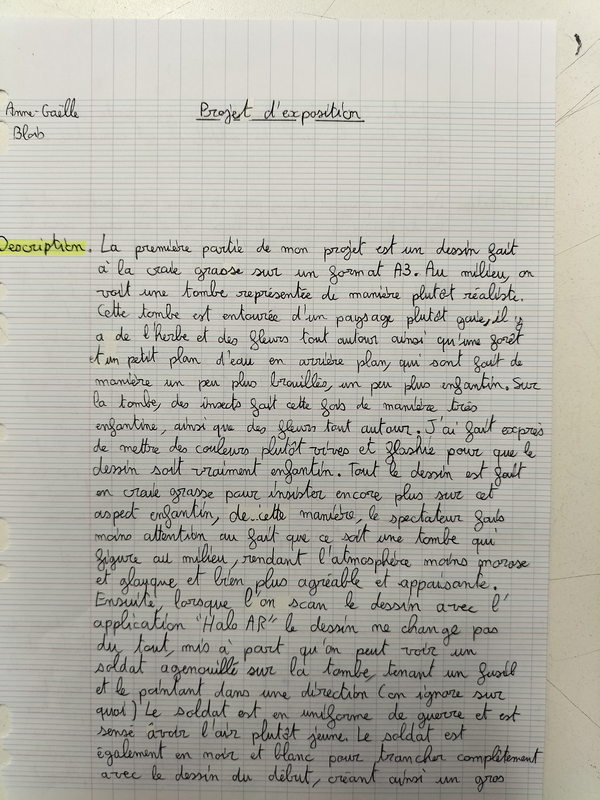 Anne-Gaëlle
Projet d'exposition
Blab
Description. La première partie de mon projet est un dessin fait
à la craie grasse sur un format A3. Au milieu, on
voit une tombe représentée de manière plutôt réaliste.
Cette tombe est entourée d'un paysage plutôt gaie, il y
a de l'herbe et des fleurs tout autour ainsi qu'une forêt
et un petit plan d'eau en arrière plan, qui sont fait de
manière un peu plus brouillés, un peu plus enfantin. Sur
la tombe, des insects fait cette fois de manière très
enfantine, ainsi que des fleurs tout autour. J'ai fait exprès
de mettre des couleurs plutôt vives et flashie pour que le
dessin soit vraiment enfantin. Tout le dessin est fait
en craie grasse pour insister encore plus sur cet
aspect enfantin, de cette manière, le spectateur fais
moins attention au fait que ce soit une tombe qui
figure au milieu, rendant l'atmosphère moins morose
et glauque et bien plus agréable et appaisante.
Ensuite, lorsque l'on scan le dessin avec l'
application "Halo AR" le dessin ne change pas
du tout, mis à part qu'on peut voir un
soldat agenouillé sur la tombe, tenant un fusil
et le pointant dans une direction (on ignore sur
quoi) Le soldat est en uniforme de guerre et est
sensé avoir l'air plutôt jeune. Le soldat est
également en noir et blanc pour trancher complètement
avec le dessin du début, créant ainsi un gros